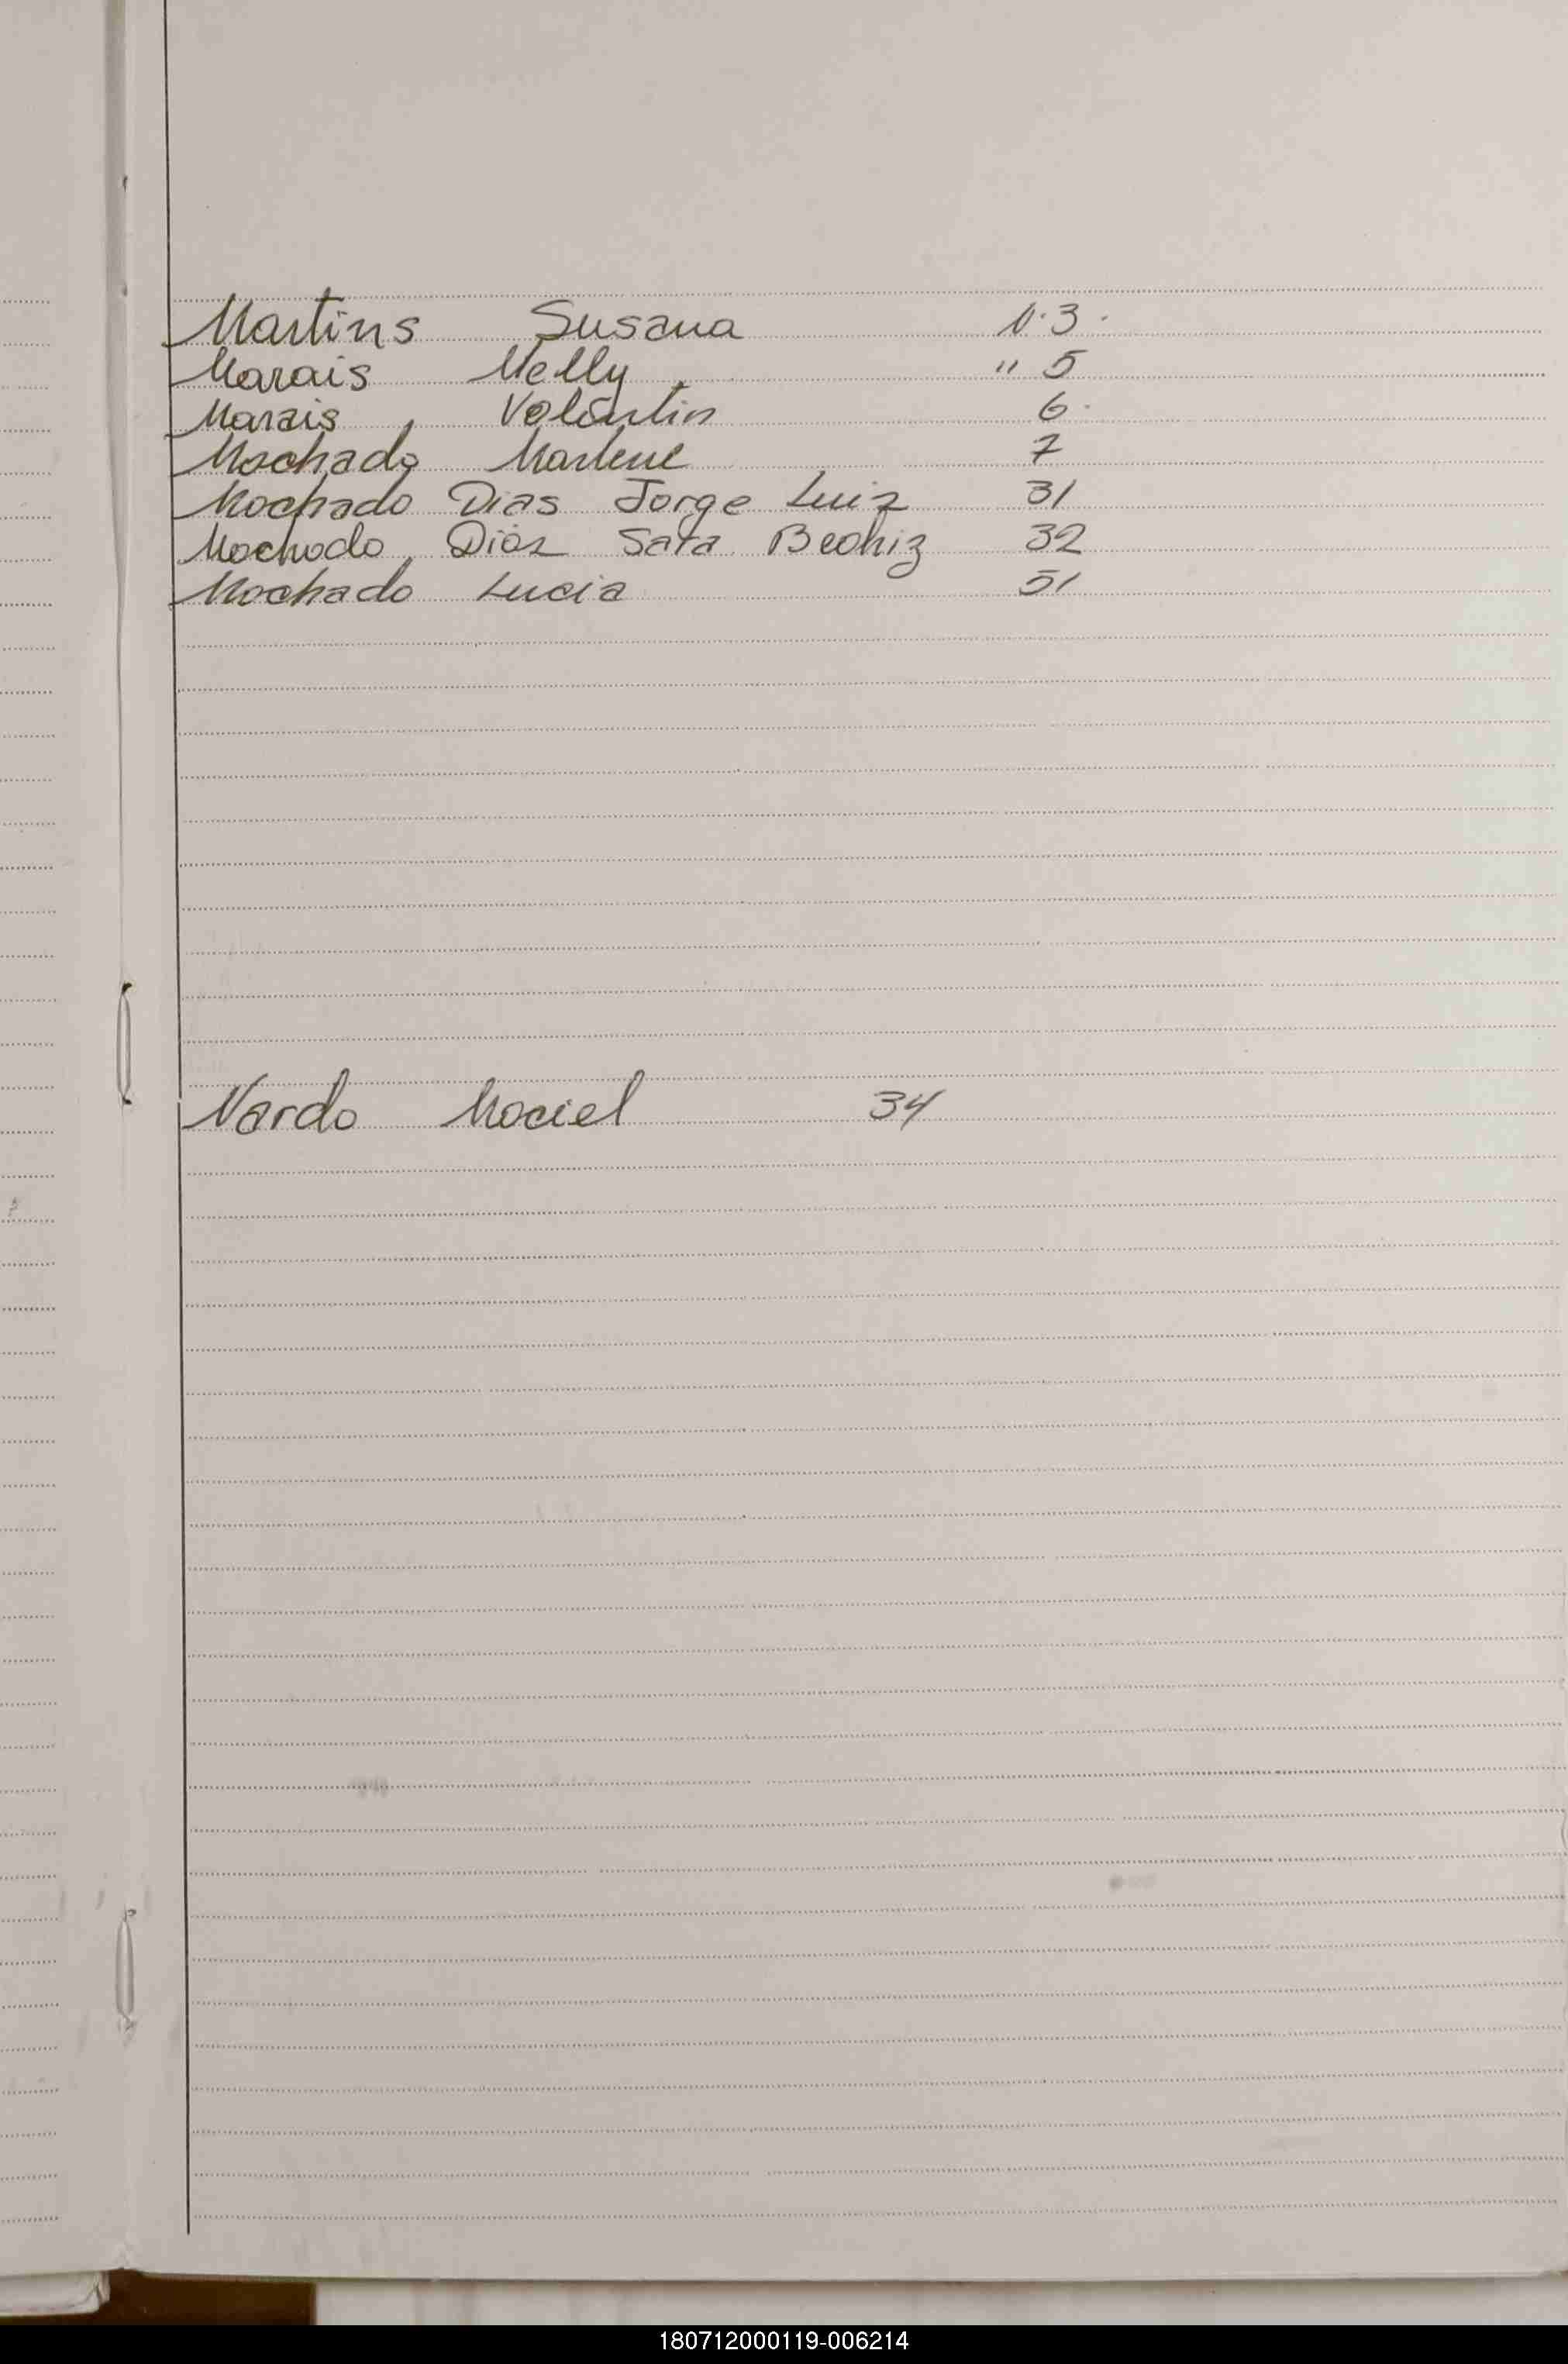 Martins Susana N. 3.
Marais Nelly " 5
Marais Valentin 6.
Machado Marlene 7
Machado Dias Jorge Luiz 31
Machado Diaz Sara Beatriz 32
Machado Lucia 51
Nardo Maciel 34
180712000119-006214